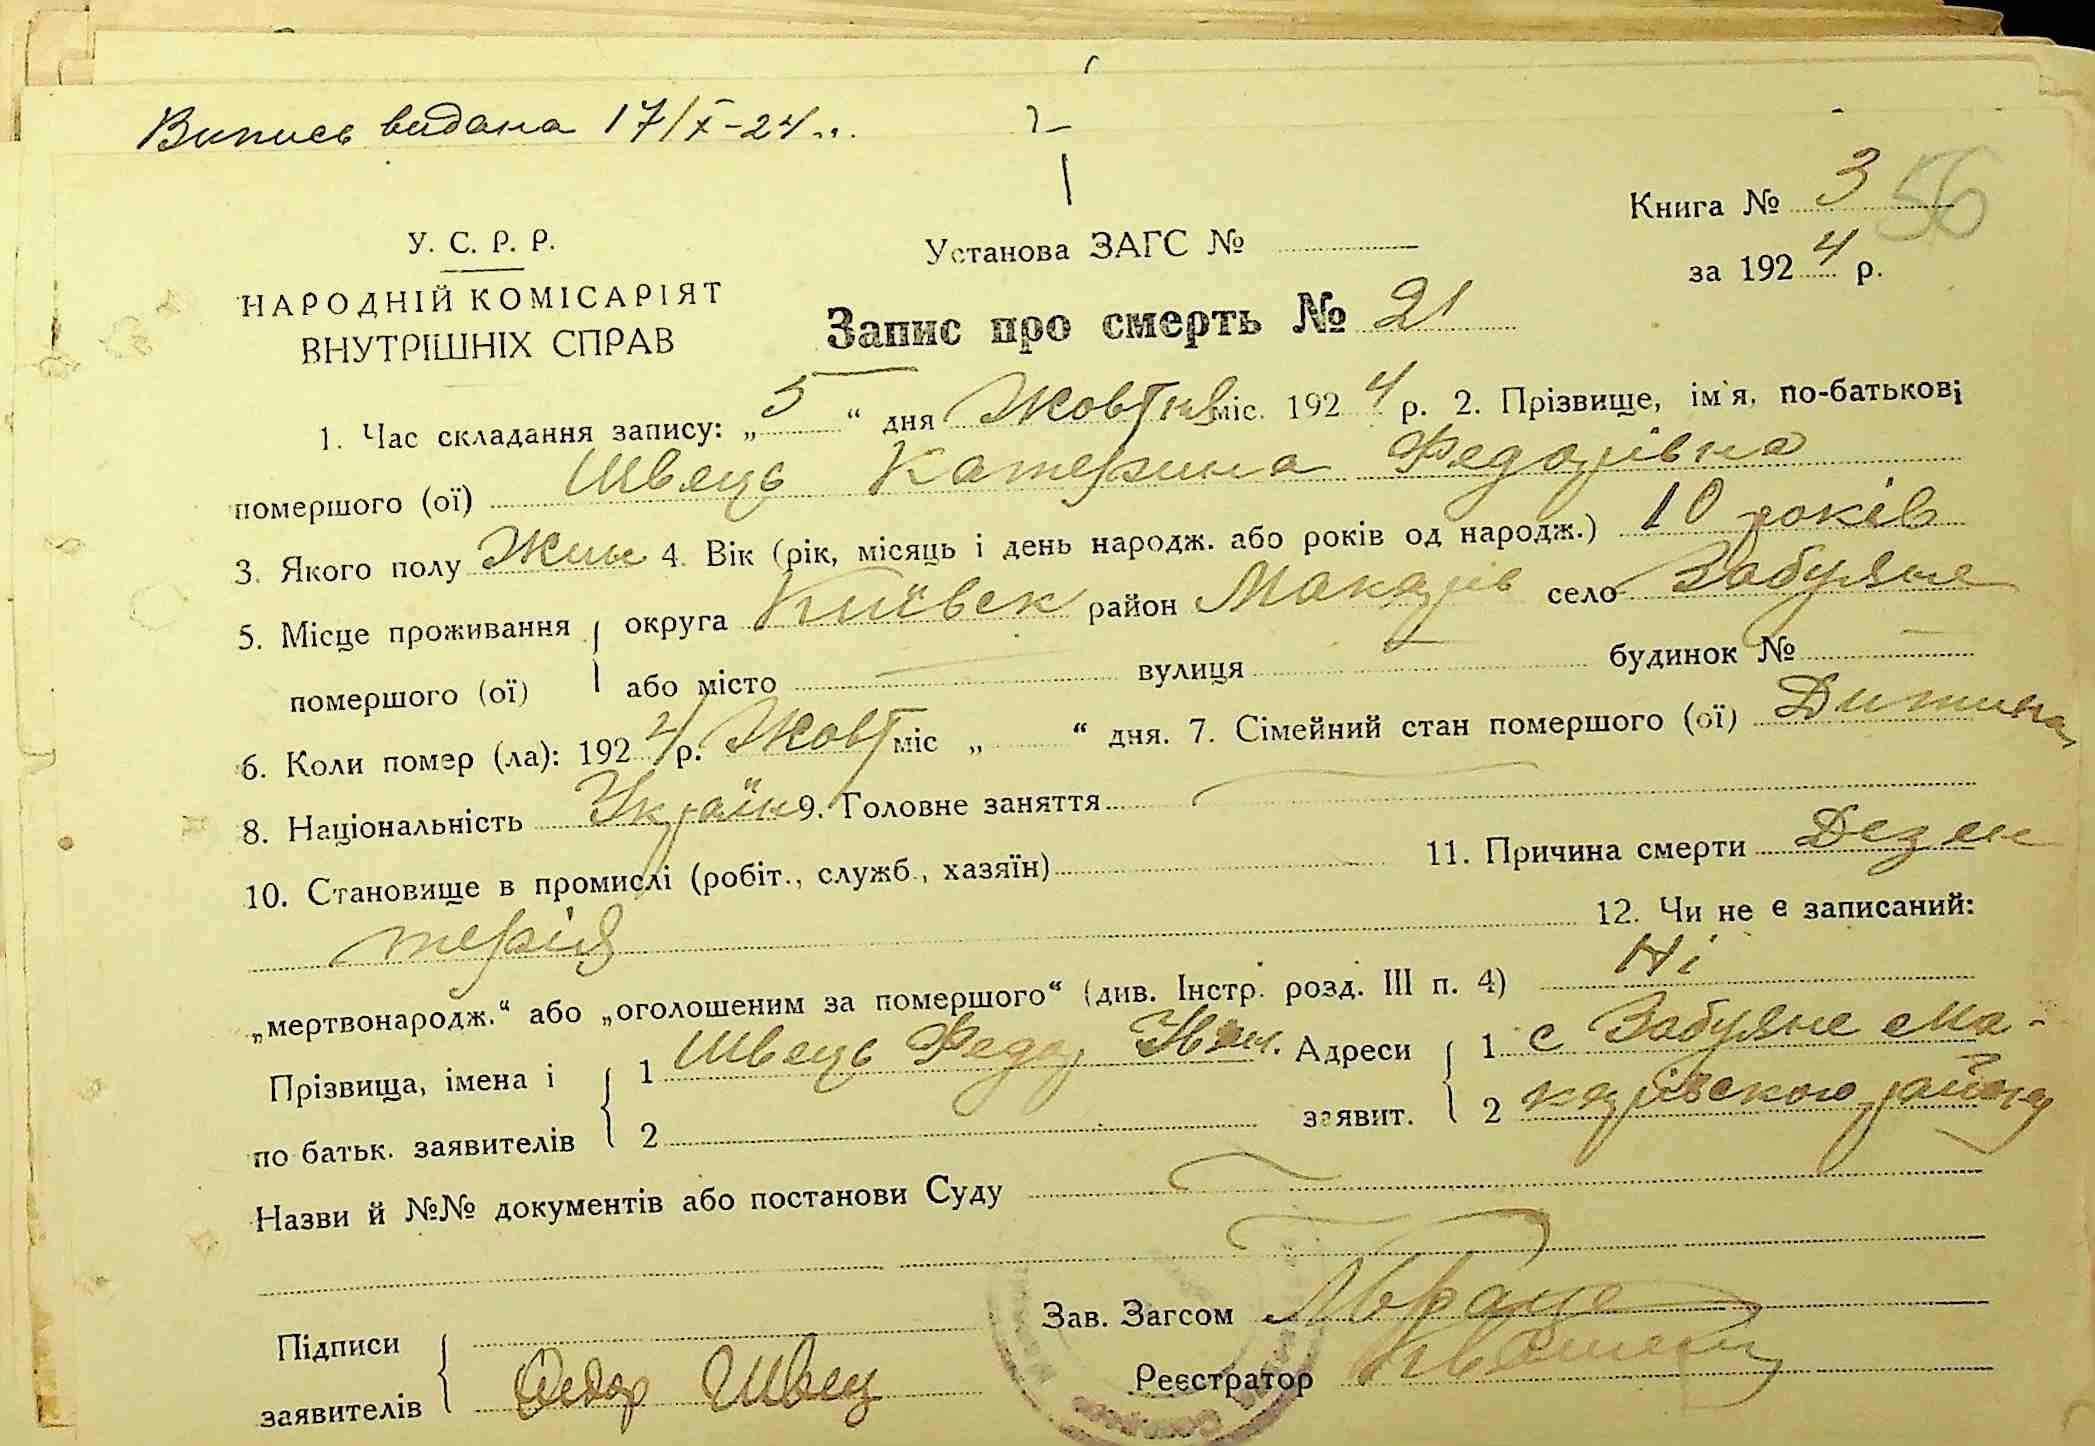 Випись видана 17/X-24 р.
Книга № 3 56
У. С. Р. Р.
Установа ЗАГС №
за 1924 р.
НАРОДНІЙ КОМІСАРІЯТ
ВНУТРІШНІХ СПРАВ
Запис про смерть № 21
1. Час складання запису: „5“ дня Жовтня міс. 1924 р. 2. Прізвище, ім'я, по-батькові
помершого (ої) Швець Катерина Федорівна
3. Якого полу Жин 4. Вік (рік, місяць і день народж. або років од народж.) 10 років
5. Місце проживання округа Київськ район Макарів село Забуяне
помершого (ої) або місто вулиця будинок №
6. Коли помер (ла): 1924 р. Жовт міс „ “ дня. 7. Сімейний стан помершого (ої) Дитина
8. Національність Україн 9. Головне заняття
10. Становище в промислі (робіт., служб., хазяїн) 11. Причина смерти Дезен
терія 12. Чи не є записаний:
„мертвонародж.“ або „оголошеним за помершого“ (див. Інстр. розд. III п. 4) Ні
Прізвища, імена і 1 Швець Федор Іван. Адреси 1 с Забуяне Ма-
по батьк. заявителів 2 заявит. 2 карівского району
Назви й №№ документів або постанови Суду
Підписи Зав. Загсом
заявителів Федор Швец Реєстратор